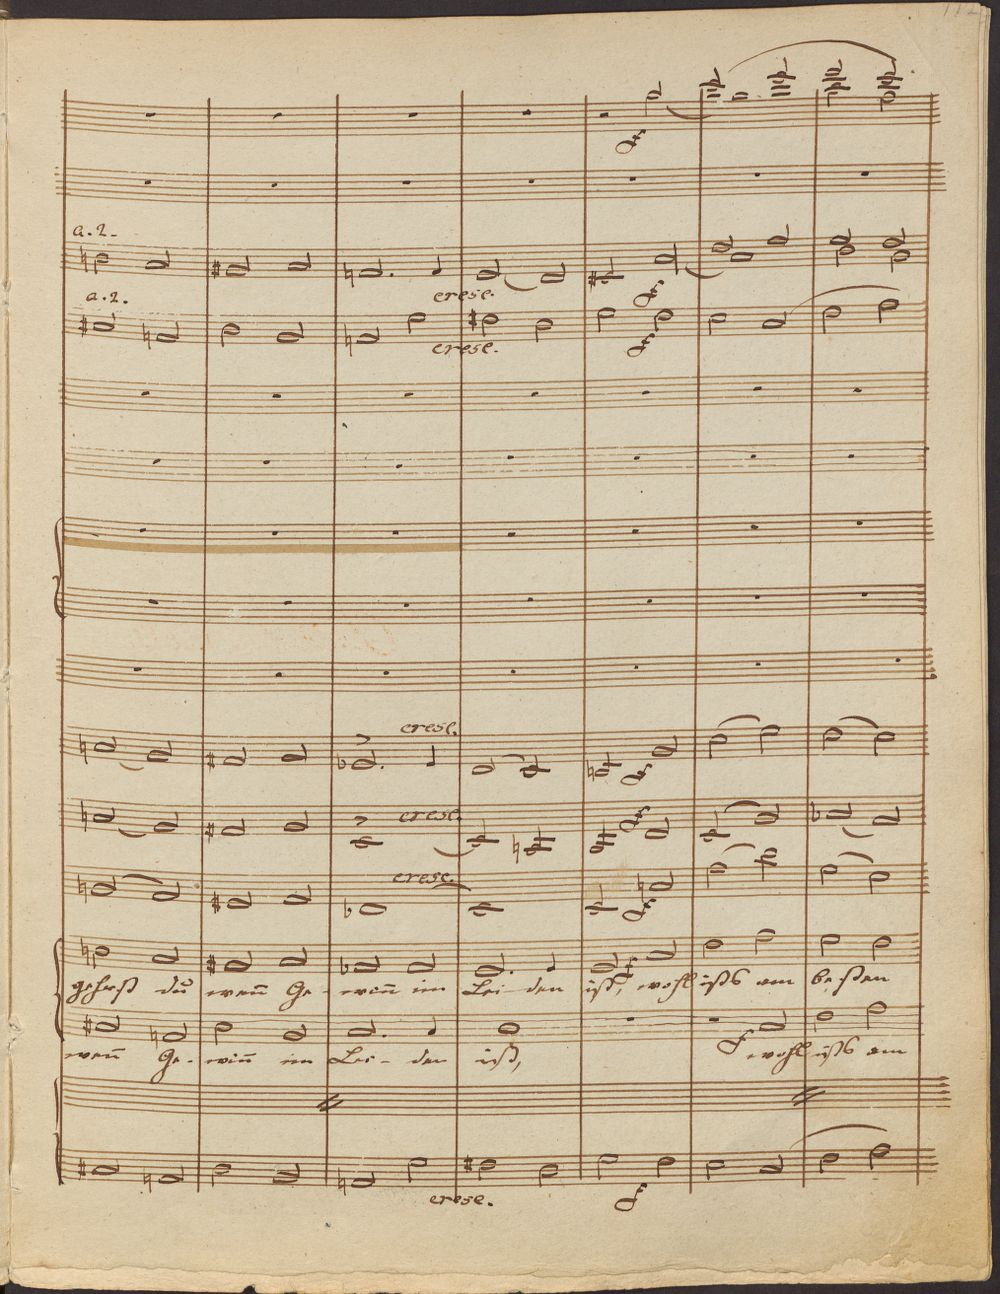 112
f
a.2.
cresc.
f
a.2.
cresc.
f
cresc.
f
cresc.
f
cresc.
f
gehest du wenn̄ Ge- winn̄ im Lei- den ist, wohl ists am besten
f
wenn̄ Ge- winn̄ im Lei- den ist, wohl ists am
f
cresc.
f